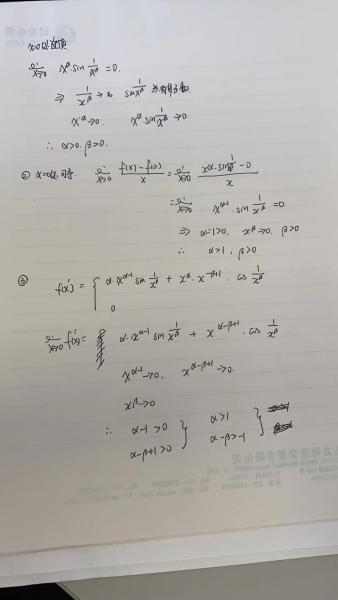 x=0处连续
lim x→0 x^α sin 1/x^β = 0.
⇒ 1/x^β → ∞ sin 1/x^β 为有界函数
x^α→0. x^α sin 1/x^β →0
∴ α>0. β>0.
② x=0处可导 lim x→0 f(x)-f(0)/x = lim x→0 x^α·sin 1/x^β - 0/x
= lim x→0 x^α-1 · sin 1/x^β = 0
⇒ α-1>0. x^β→0. β>0
∴ α>1, β>0
③
f'(x) = { α·x^α-1 sin 1/x^β + x^α · x^-β+1 · cos 1/x^β
0
lim x→0 f'(x) = α·x^α-1 sin 1/x^β + x^α-β+1 · cos 1/x^β
x^α-1→0. x^α-β+1→0.
x^β→0
∴ α-1>0 } α>1 }
α-β+1>0 } α-β>-1 }